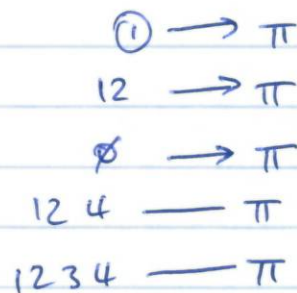 ① → π
12 → π
∅ → π
124 — π
1234 — π